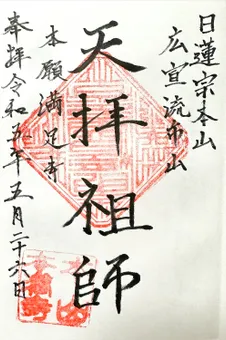 日蓮宗本山
広宣流布山
天拝祖師
本願満足寺
奉拝令和五年五月二十六日